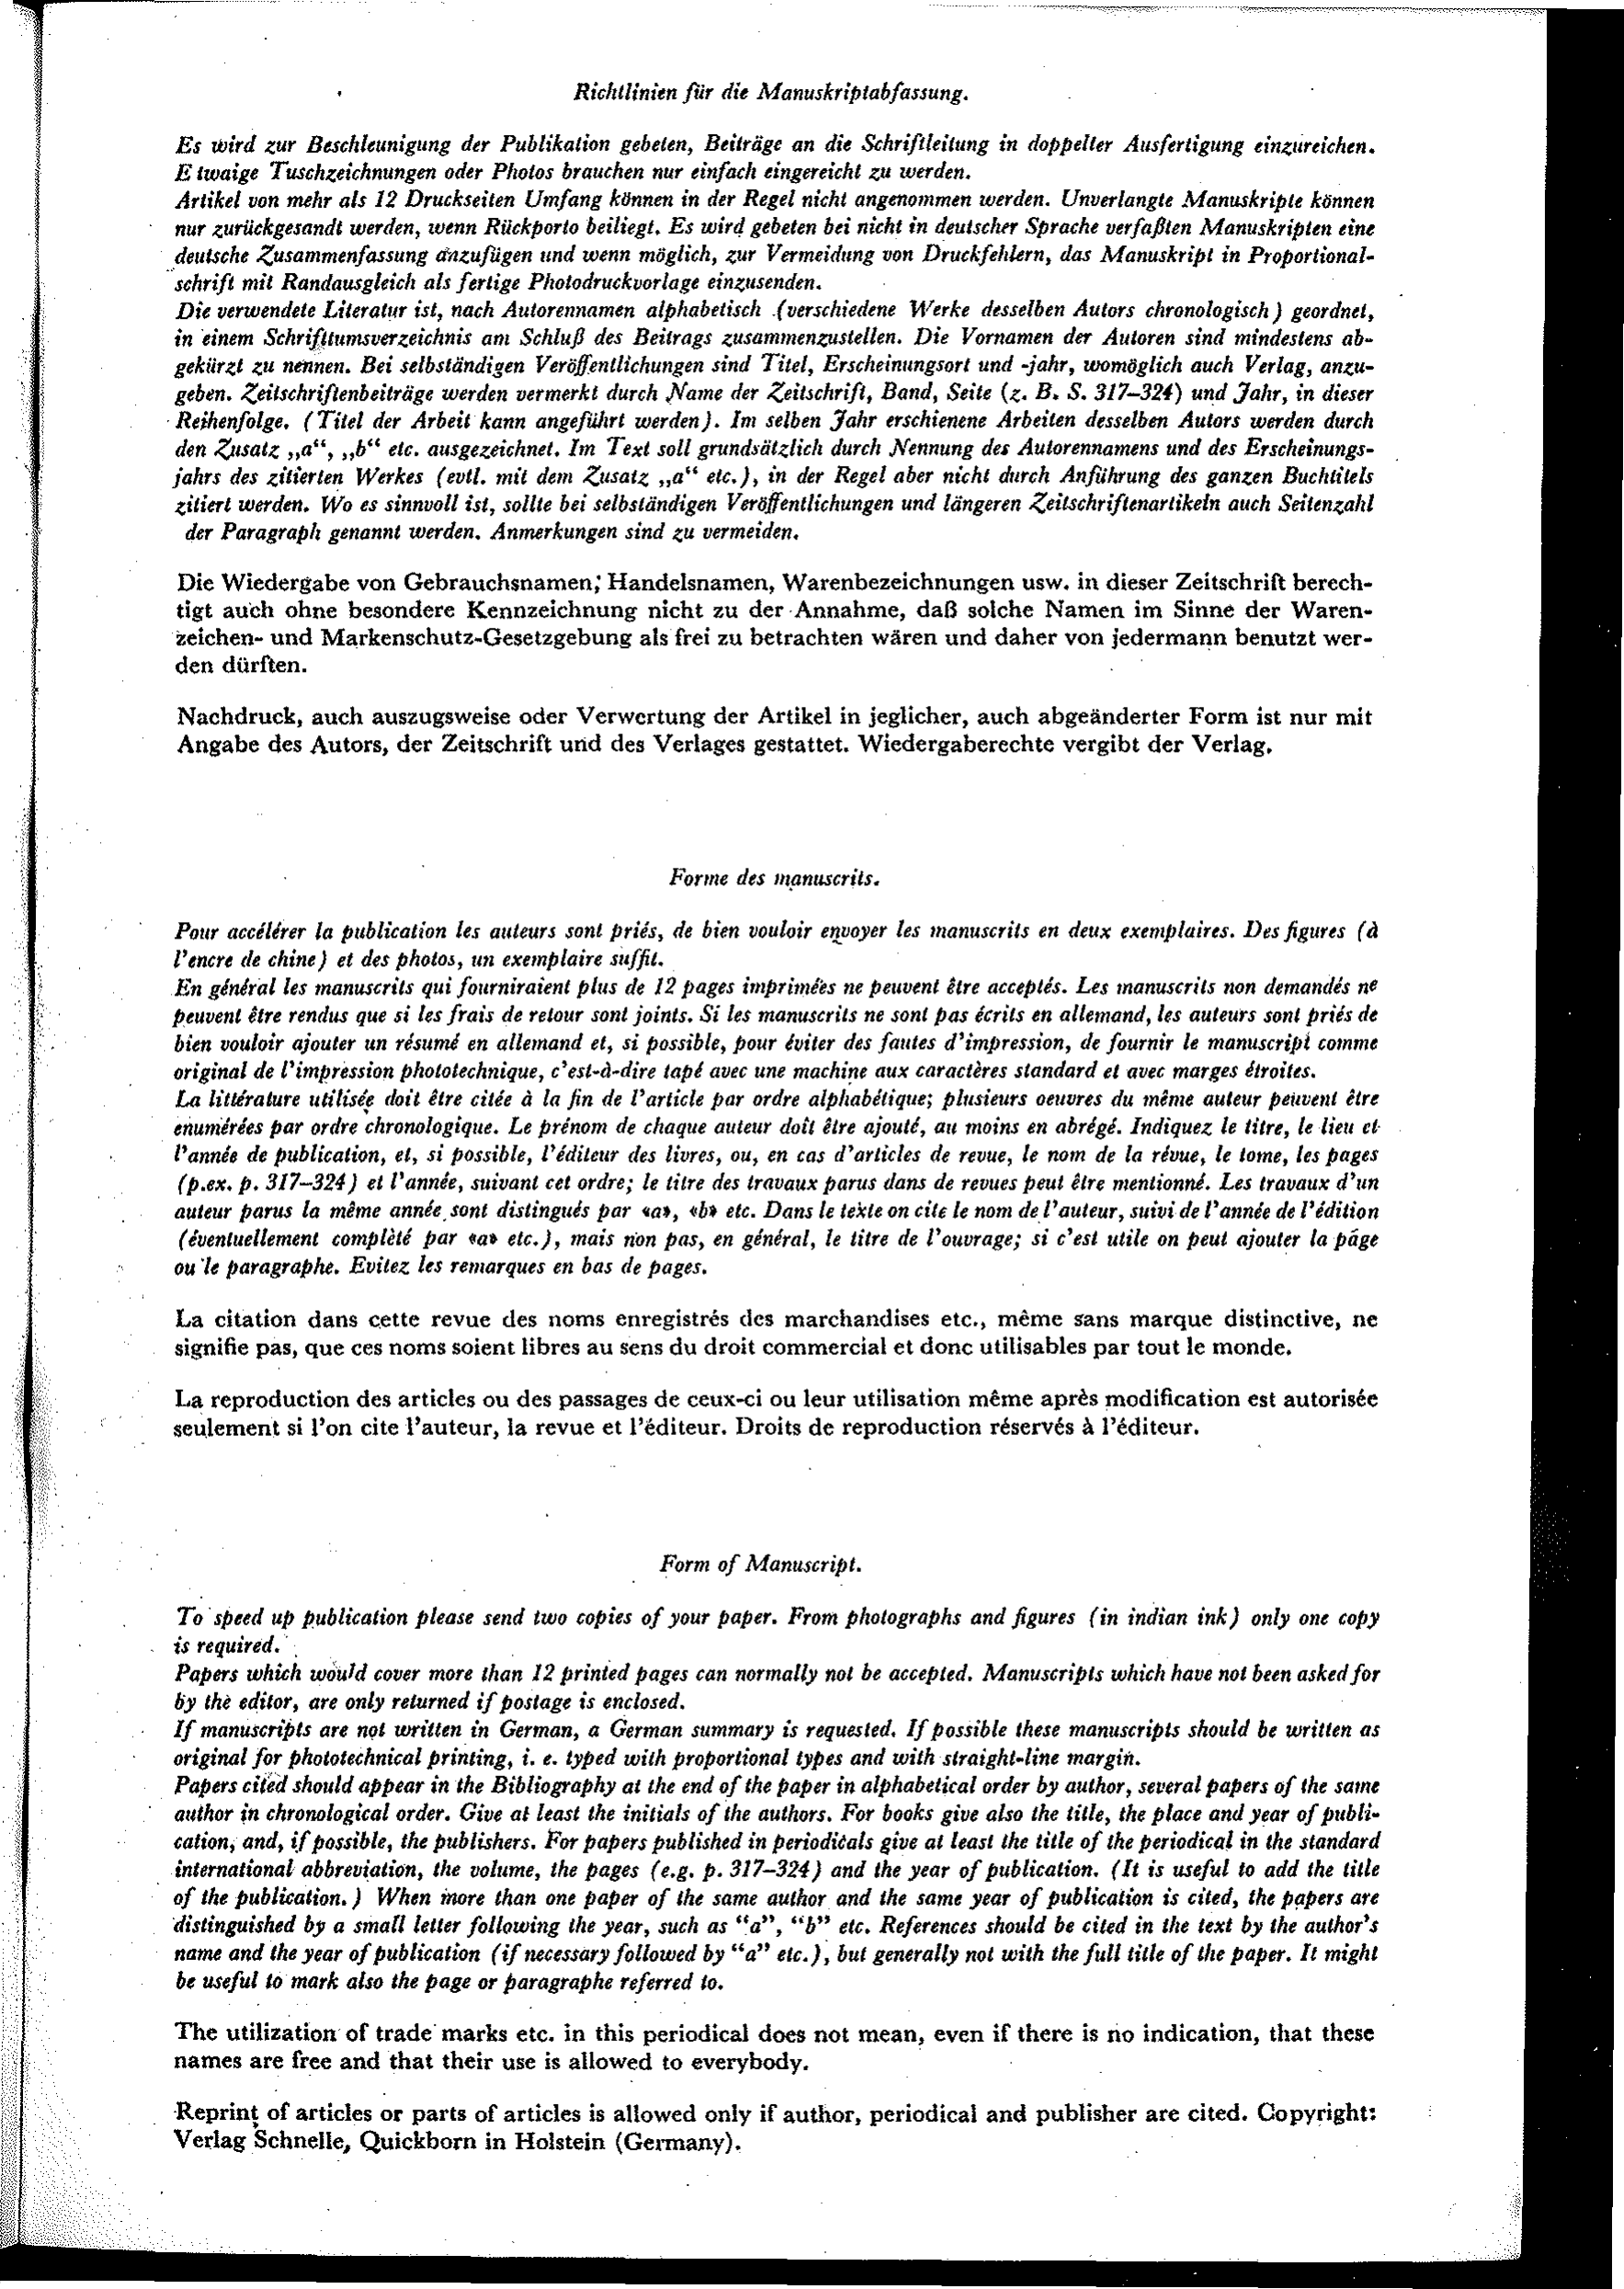 Richtlinien für die Manuskriptabfassung.
Es wird zur Beschleunigung der Publikation gebeten, Beiträge an die Schriftleitung in doppelter Ausfertigung einzureichen.
Etwaige Tuschzeichnungen oder Photos brauchen nur einfach eingereicht zu werden.
Artikel von mehr als 12 Druckseiten Umfang können in der Regel nicht angenommen werden. Unverlangte Manuskripte können
nur zurückgesandt werden, wenn Rückporto beiliegt. Es wird gebeten bei nicht in deutscher Sprache verfaßten Manuskripten eine
deutsche Zusammenfassung anzufügen und wenn möglich, zur Vermeidung von Druckfehlern, das Manuskript in Proportional-
schrift mit Randausgleich als fertige Photodruckvorlage einzusenden.
Die verwendete Literatur ist, nach Autorennamen alphabetisch (verschiedene Werke desselben Autors chronologisch) geordnet,
in einem Schrifttumsverzeichnis am Schluß des Beitrags zusammenzustellen. Die Vornamen der Autoren sind mindestens ab-
gekürzt zu nennen. Bei selbständigen Veröffentlichungen sind Titel, Erscheinungsort und -jahr, womöglich auch Verlag, anzu-
geben. Zeitschriftenbeiträge werden vermerkt durch Name der Zeitschrift, Band, Seite (z. B. S. 317–324) und Jahr, in dieser
Reihenfolge. (Titel der Arbeit kann angeführt werden). Im selben Jahr erschienene Arbeiten desselben Autors werden durch
den Zusatz „a“, „b“ etc. ausgezeichnet. Im Text soll grundsätzlich durch Nennung des Autorennamens und des Erscheinungs-
jahrs des zitierten Werkes (evtl. mit dem Zusatz „a“ etc.), in der Regel aber nicht durch Anführung des ganzen Buchtitels
zitiert werden. Wo es sinnvoll ist, sollte bei selbständigen Veröffentlichungen und längeren Zeitschriftenartikeln auch Seitenzahl
der Paragraph genannt werden. Anmerkungen sind zu vermeiden.
Die Wiedergabe von Gebrauchsnamen, Handelsnamen, Warenbezeichnungen usw. in dieser Zeitschrift berech-
tigt auch ohne besondere Kennzeichnung nicht zu der Annahme, daß solche Namen im Sinne der Waren-
zeichen- und Markenschutz-Gesetzgebung als frei zu betrachten wären und daher von jedermann benutzt wer-
den dürften.
Nachdruck, auch auszugsweise oder Verwertung der Artikel in jeglicher, auch abgeänderter Form ist nur mit
Angabe des Autors, der Zeitschrift und des Verlages gestattet. Wiedergaberechte vergibt der Verlag.
Forme des manuscrits.
Pour accélérer la publication les auteurs sont priés, de bien vouloir envoyer les manuscrits en deux exemplaires. Des figures (à
l'encre de chine) et des photos, un exemplaire suffit.
En général les manuscrits qui fourniraient plus de 12 pages imprimées ne peuvent être acceptés. Les manuscrits non demandés ne
peuvent être rendus que si les frais de retour sont joints. Si les manuscrits ne sont pas écrits en allemand, les auteurs sont priés de
bien vouloir ajouter un résumé en allemand et, si possible, pour éviter des fautes d'impression, de fournir le manuscript comme
original de l'impression phototechnique, c'est-à-dire tapé avec une machine aux caractères standard et avec marges étroites.
La littérature utilisée doit être citée à la fin de l'article par ordre alphabétique; plusieurs oeuvres du même auteur peuvent être
enumérées par ordre chronologique. Le prénom de chaque auteur doit être ajouté, au moins en abrégé. Indiquez le titre, le lieu et
l'année de publication, et, si possible, l'éditeur des livres, ou, en cas d'articles de revue, le nom de la révue, le tome, les pages
(p.ex. p. 317–324) et l'année, suivant cet ordre; le titre des travaux parus dans de revues peut être mentionné. Les travaux d'un
auteur parus la même année sont distingués par «a», «b» etc. Dans le texte on cite le nom de l'auteur, suivi de l'année de l'édition
(éventuellement complèté par «a» etc.), mais non pas, en général, le titre de l'ouvrage; si c'est utile on peut ajouter la page
ou le paragraphe. Evitez les remarques en bas de pages.
La citation dans cette revue des noms enregistrés des marchandises etc., même sans marque distinctive, ne
signifie pas, que ces noms soient libres au sens du droit commercial et donc utilisables par tout le monde.
La reproduction des articles ou des passages de ceux-ci ou leur utilisation même après modification est autorisée
seulement si l'on cite l'auteur, la revue et l'éditeur. Droits de reproduction réservés à l'éditeur.
Form of Manuscript.
To speed up publication please send two copies of your paper. From photographs and figures (in indian ink) only one copy
is required.
Papers which would cover more than 12 printed pages can normally not be accepted. Manuscripts which have not been asked for
by the editor, are only returned if postage is enclosed.
If manuscripts are not written in German, a German summary is requested. If possible these manuscripts should be written as
original for phototechnical printing, i. e. typed with proportional types and with straight-line margin.
Papers cited should appear in the Bibliography at the end of the paper in alphabetical order by author, several papers of the same
author in chronological order. Give at least the initials of the authors. For books give also the title, the place and year of publi-
cation, and, if possible, the publishers. For papers published in periodicals give at least the title of the periodical in the standard
international abbreviation, the volume, the pages (e.g. p. 317–324) and the year of publication. (It is useful to add the title
of the publication.) When more than one paper of the same author and the same year of publication is cited, the papers are
distinguished by a small letter following the year, such as “a”, “b” etc. References should be cited in the text by the author's
name and the year of publication (if necessary followed by “a” etc.), but generally not with the full title of the paper. It might
be useful to mark also the page or paragraphe referred to.
The utilization of trade marks etc. in this periodical does not mean, even if there is no indication, that these
names are free and that their use is allowed to everybody.
Reprint of articles or parts of articles is allowed only if author, periodical and publisher are cited. Copyright:
Verlag Schnelle, Quickborn in Holstein (Germany).